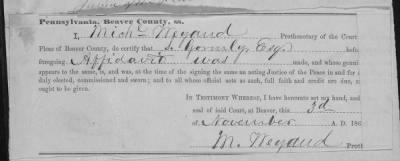 Pennsylvania, Beaver County, ss.
I, Mich. Weyand Prothonotary of the Court
Pleas of Beaver County, do certify that S. Gormly Esq. before
foregoing Affidavit was made, and whose genui
appears to the same, is, and was, at the time of the signing the same an acting Justice of the Peace in and for s
duly elected, commissioned and sworn; and to all whose official acts as such, full faith and credit are due, a
ought to be given.
In Testimony Whereof, I have hereunto set my hand, and
seal of said Court, at Beaver, this 3d
of November A. D. 186
M. Weyand Proth